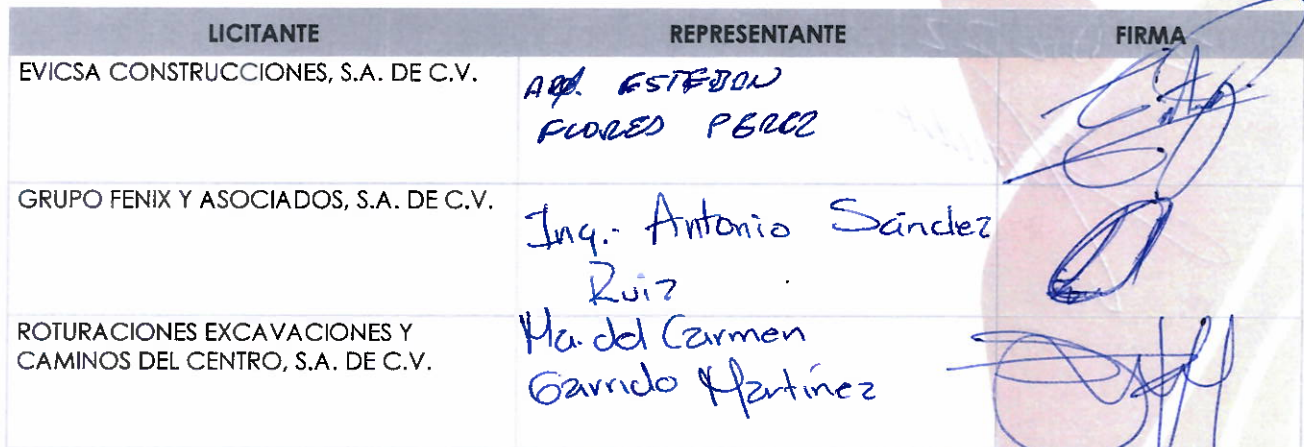 LICITANTE REPRESENTANTE FIRMA
EVICSA CONSTRUCCIONES, S.A. DE C.V.
ARQ. ESTEBAN
FLORES PEREZ
GRUPO FENIX Y ASOCIADOS, S.A. DE C.V.
Ing.- Antonio Sánchez
Ruiz
ROTURACIONES EXCAVACIONES Y
CAMINOS DEL CENTRO, S.A. DE C.V.
Ma. del Carmen
Garrido Martínez